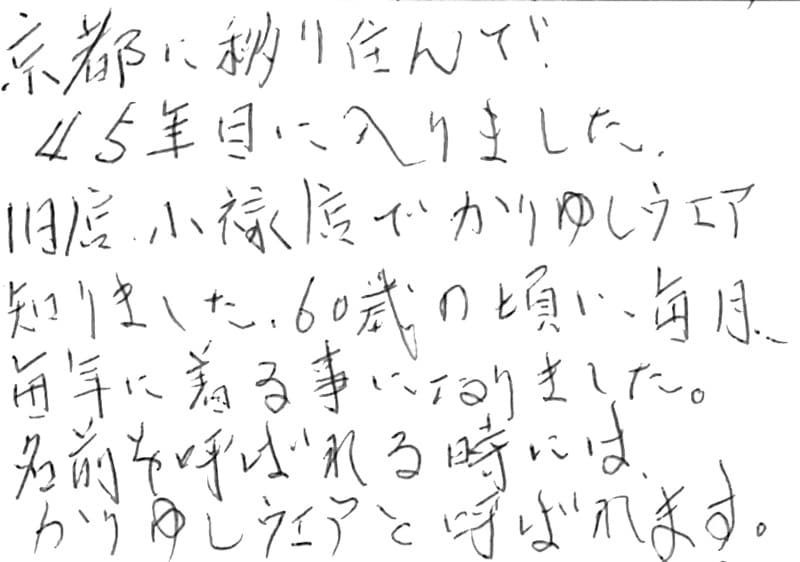 京都に移り住んで
45年目に入りました.
旧店.小禄店でかりゆしウエア
知りました.60歳の頃い、毎月、
毎年に着る事になりました。
名前を呼ばれる時には、
かりゆしウエアと呼ばれます。